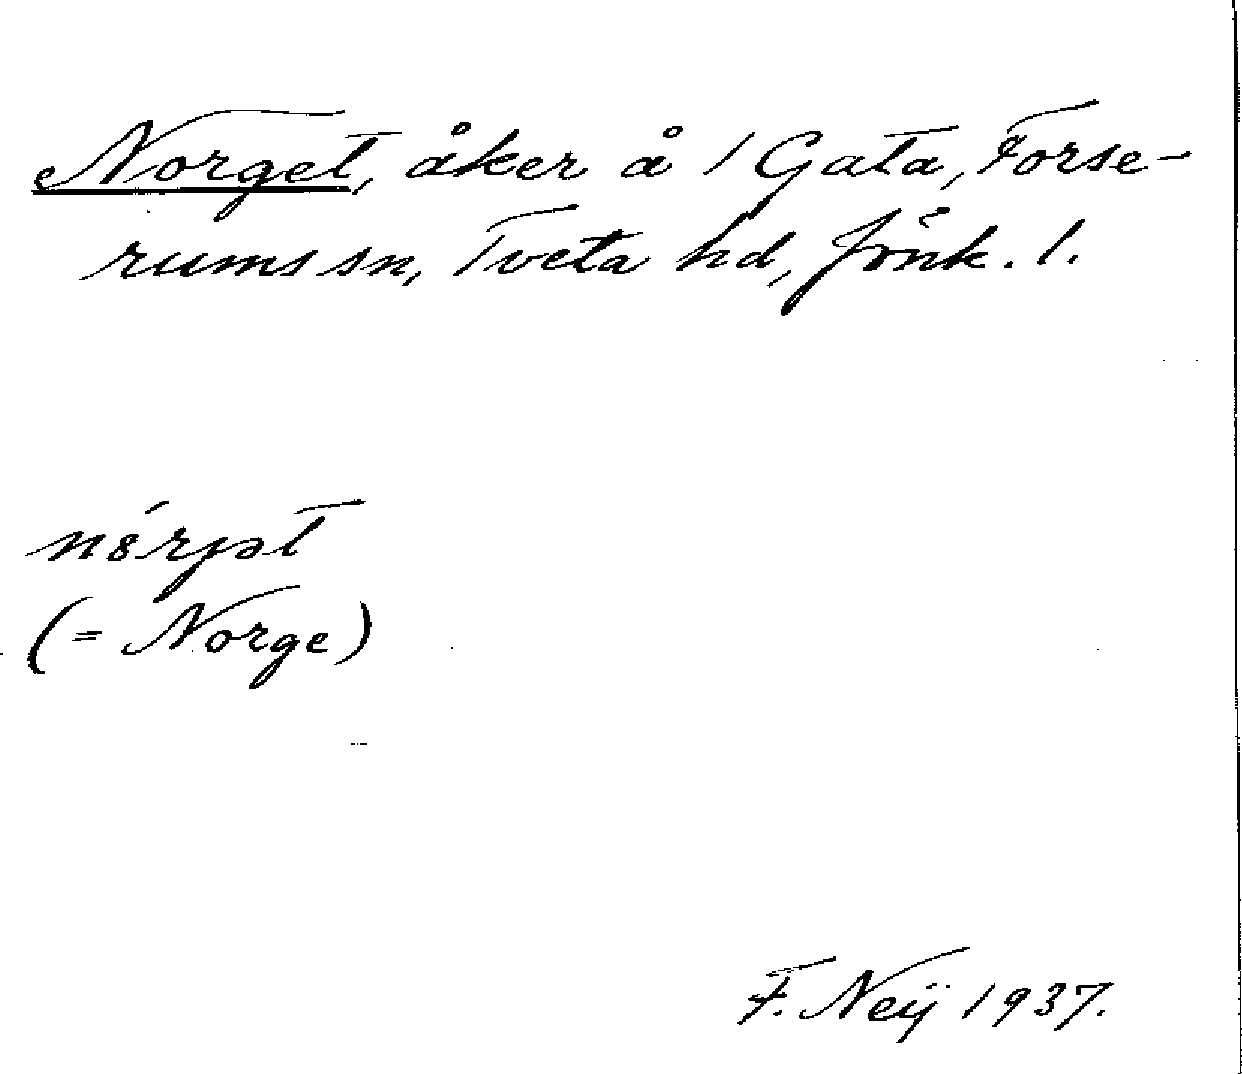 Norget, åker å 1 Gata, Forse-
rums sn, Tveta hd, Jönk. l.
nȣ́rjət
(= Norge)
F. Neij 1937.